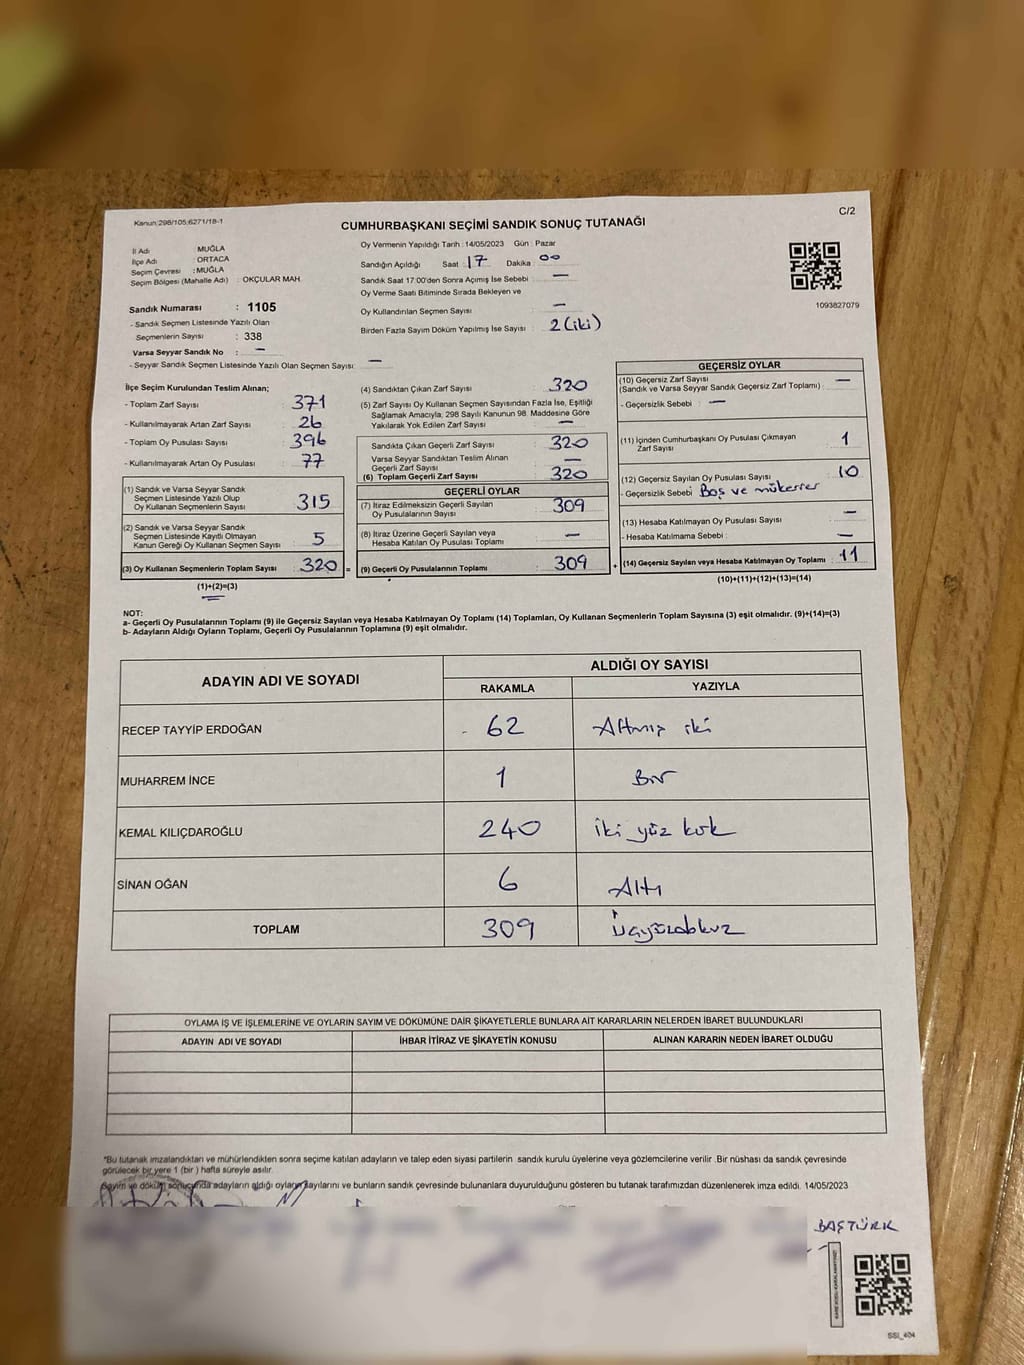 Kanun:298/105;6271/18-1
C/2
CUMHURBAŞKANI SEÇİMİ SANDIK SONUÇ TUTANAĞI
İl Adı : MUĞLA
İlçe Adı : ORTACA
Seçim Çevresi : MUĞLA
Seçim Bölgesi (Mahalle Adı) : OKÇULAR MAH.
Sandık Numarası : 1105
- Sandık Seçmen Listesinde Yazılı Olan
Seçmenlerin Sayısı : 338
Varsa Seyyar Sandık No : —
- Seyyar Sandık Seçmen Listesinde Yazılı Olan Seçmen Sayısı: —
Oy Vermenin Yapıldığı Tarih :14/05/2023 Gün : Pazar
Sandığın Açıldığı Saat 17 Dakika 00
Sandık Saat 17:00'den Sonra Açımış İse Sebebi : —
Oy Verme Saati Bitiminde Sırada Bekleyen ve
Oy Kullandırılan Seçmen Sayısı : —
Birden Fazla Sayım Döküm Yapılmış İse Sayısı : 2 (iki)
1093827079
İlçe Seçim Kurulundan Teslim Alınan;
- Toplam Zarf Sayısı : 371
- Kullanılmayarak Artan Zarf Sayısı : 26
- Toplam Oy Pusulası Sayısı : 396
- Kullanılmayarak Artan Oy Pusulası : 77
(1) Sandık ve Varsa Seyyar Sandık
Seçmen Listesinde Yazılı Olup
Oy Kullanan Seçmenlerin Sayısı : 315
(2) Sandık ve Varsa Seyyar Sandık
Seçmen Listesinde Kayıtlı Olmayan
Kanun Gereği Oy Kullanan Seçmen Sayısı : 5
(3) Oy Kullanan Seçmenlerin Toplam Sayısı : 320 =
(1)+(2)=(3)
(4) Sandıktan Çıkan Zarf Sayısı : 320
(5) Zarf Sayısı Oy Kullanan Seçmen Sayısından Fazla İse, Eşitliği
Sağlamak Amacıyla; 298 Sayılı Kanunun 98. Maddesine Göre
Yakılarak Yok Edilen Zarf Sayısı : —
Sandıkta Çıkan Geçerli Zarf Sayısı : 320
Varsa Seyyar Sandıktan Teslim Alınan
Geçerli Zarf Sayısı : —
(6) Toplam Geçerli Zarf Sayısı : 320
GEÇERLİ OYLAR
(7) İtiraz Edilmeksizin Geçerli Sayılan
Oy Pusulalarının Sayısı : 309
(8) İtiraz Üzerine Geçerli Sayılan veya
Hesaba Katılan Oy Pusulası Toplamı : —
(9) Geçerli Oy Pusulalarının Toplamı : 309 +
GEÇERSİZ OYLAR
(10) Geçersiz Zarf Sayısı
(Sandık ve Varsa Seyyar Sandık Geçersiz Zarf Toplamı) : —
- Geçersizlik Sebebi : —
(11) İçinden Cumhurbaşkanı Oy Pusulası Çıkmayan
Zarf Sayısı : 1
(12) Geçersiz Sayılan Oy Pusulası Sayısı : 10
- Geçersizlik Sebebi : Boş ve mükerrer
(13) Hesaba Katılmayan Oy Pusulası Sayısı : —
- Hesaba Katılmama Sebebi : —
(14) Geçersiz Sayılan veya Hesaba Katılmayan Oy Toplamı : 11
(10)+(11)+(12)+(13)=(14)
NOT:
a- Geçerli Oy Pusulalarının Toplamı (9) ile Geçersiz Sayılan veya Hesaba Katılmayan Oy Toplamı (14) Toplamları, Oy Kullanan Seçmenlerin Toplam Sayısına (3) eşit olmalıdır. (9)+(14)=(3)
b- Adayların Aldığı Oyların Toplamı, Geçerli Oy Pusulalarının Toplamına (9) eşit olmalıdır.
ADAYIN ADI VE SOYADI ALDIĞI OY SAYISI
RAKAMLA YAZIYLA
RECEP TAYYİP ERDOĞAN 62 Altmış iki
MUHARREM İNCE 1 Bir
KEMAL KILIÇDAROĞLU 240 iki yüz kırk
SİNAN OĞAN 6 Altı
TOPLAM 309 üçyüzdokuz
OYLAMA İŞ VE İŞLEMLERİNE VE OYLARIN SAYIM VE DÖKÜMÜNE DAİR ŞİKAYETLERLE BUNLARA AİT KARARLARIN NELERDEN İBARET BULUNDUKLARI
ADAYIN ADI VE SOYADI İHBAR İTİRAZ VE ŞİKAYETİN KONUSU ALINAN KARARIN NEDEN İBARET OLDUĞU
*Bu tutanak imzalandıktan ve mühürlendikten sonra seçime katılan adayların ve talep eden siyasi partilerin sandık kurulu üyelerine veya gözlemcilerine verilir .Bir nüshası da sandık çevresinde
görülecek bir yere 1 (bir ) hafta süreyle asılır.
Sayım ve döküm sonucunda adayların aldığı oyların sayılarını ve bunların sandık çevresinde bulunanlara duyurulduğunu gösteren bu tutanak tarafımızdan düzenlenerek imza edildi. 14/05/2023
BAŞTÜRK
SSI_404